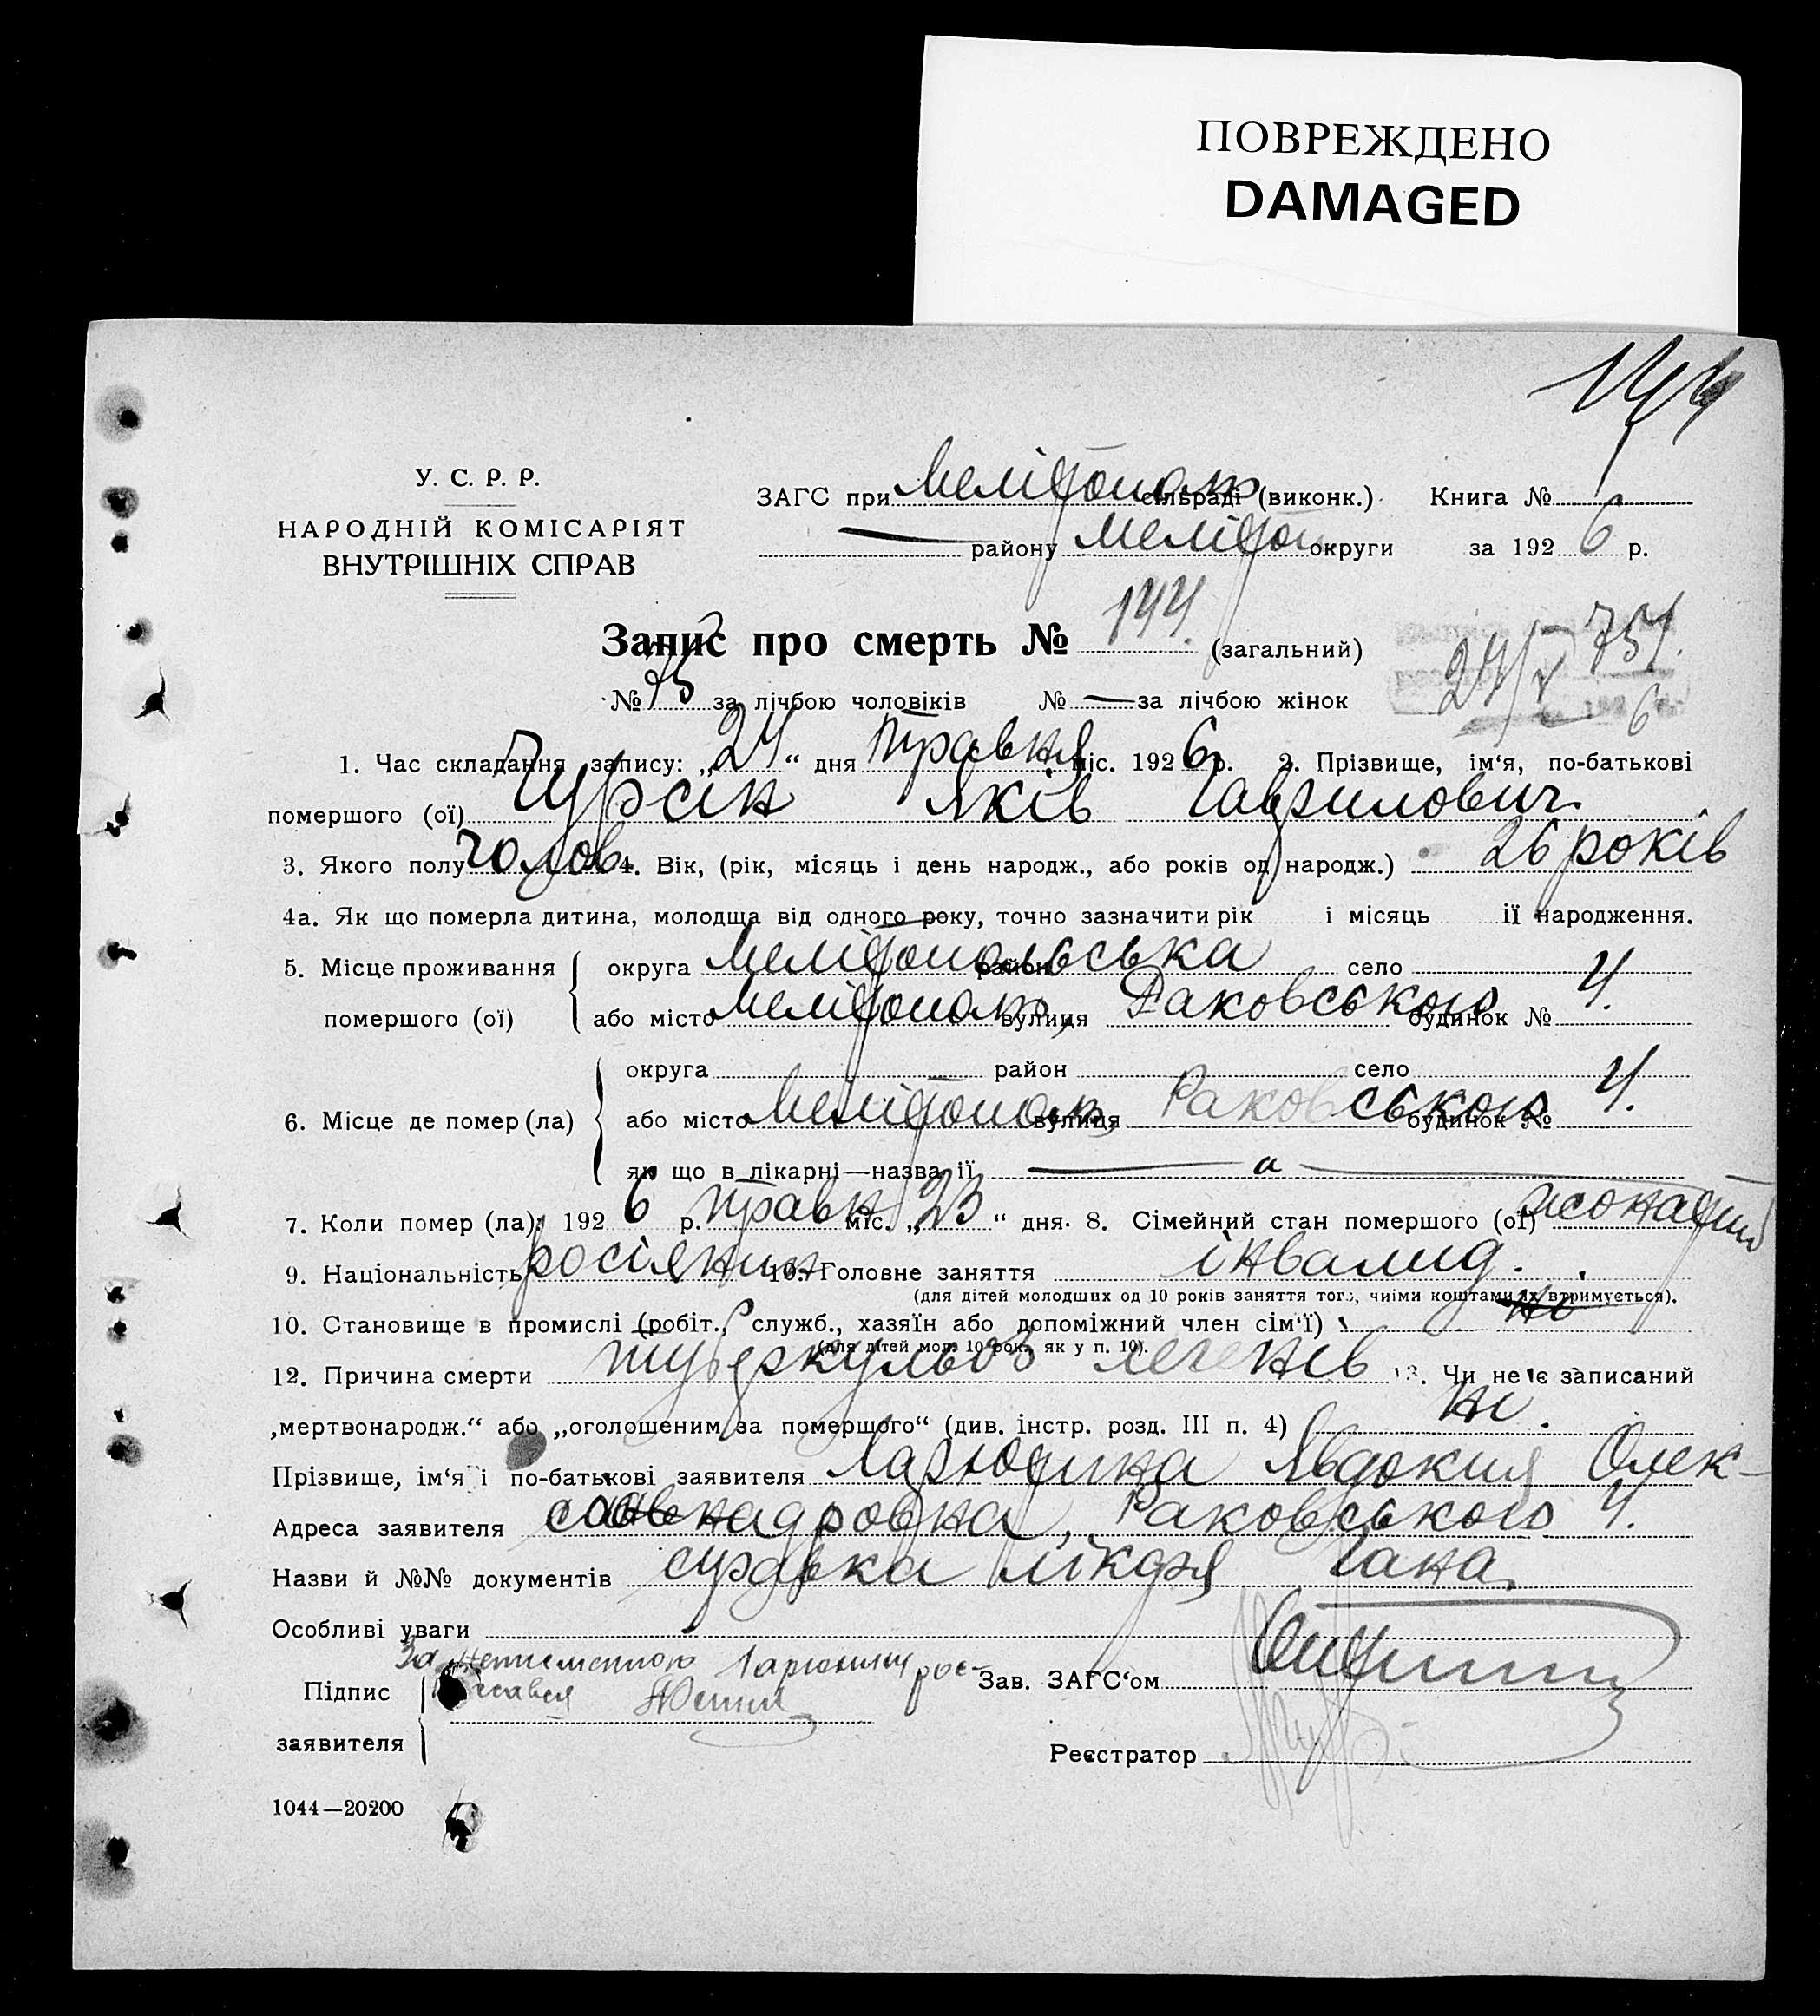 ПОВРЕЖДЕНО
DAMAGED
144
У. С. Р. Р.
НАРОДНІЙ КОМІСАРІЯТ
ВНУТРІШНІХ СПРАВ
ЗАГС при Мелітополь сільраді (виконк.) Книга №
— району Мелітоп округи за 1926 р.
Запис про смерть № 144. (загальний)
24/V 751.
6
№ 75 за лічбою чоловіків № — за лічбою жінок
1. Час складання запису: „24“ дня травня міс. 1926 р. 2. Прізвище, ім‘я, по-батькові
помершого (ої) Яків Гаврилович.
3. Якого полу чолов. 4. Вік, (рік, місяць і день народж., або років од народж.) 26 років
4а. Як що померла дитина, молодща від одного року, точно зазначити рік і місяць ії народження.
5. Місце проживання округа Мелітопольська район село
помершого (ої) або місто Мелітополь, вулиця Раковського будинок № 4.
округа район село
6. Місце де помер (ла) або місто Мелітополь, вулиця Раковського будинок № 4.
як що в лікарні—назва ії —
7. Коли помер (ла): 1926 р. травн міс. „23“ дня. 8. Сімейний стан помершого (ої) жонатий
9. Національність росіянин 10. Головне заняття інвалид.
(для дітей молодших од 10 років заняття того, чиіми коштами їх втримується).
10. Становище в промислі (робіт., служб., хазяїн або допоміжний член сім‘ї)
(для дітей мол. 10 рок., як у п. 10).
12. Причина смерти туберкульоз легенів 13. Чи не є записаний
„мертвонародж.“ або „оголошеним за померщого“ (див. інстр. розд. III п. 4) ні.
Прізвище, ім‘я і по-батькові заявителя Явдокия Олек-
Адреса заявителя сандровна, Раковського 4.
Назви й №№ документів справка лікаря Гана.
Особливі уваги
За неписьменною рос-
Підпис Зав. ЗАГС‘ом
заявителя
Реєстратор
1044—20200